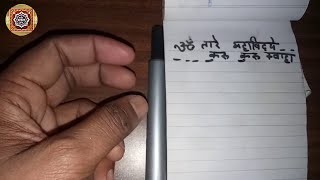 ॐ तारे महाविद्ये _ _
_ _ _ _ कुरु कुरु स्वाहा